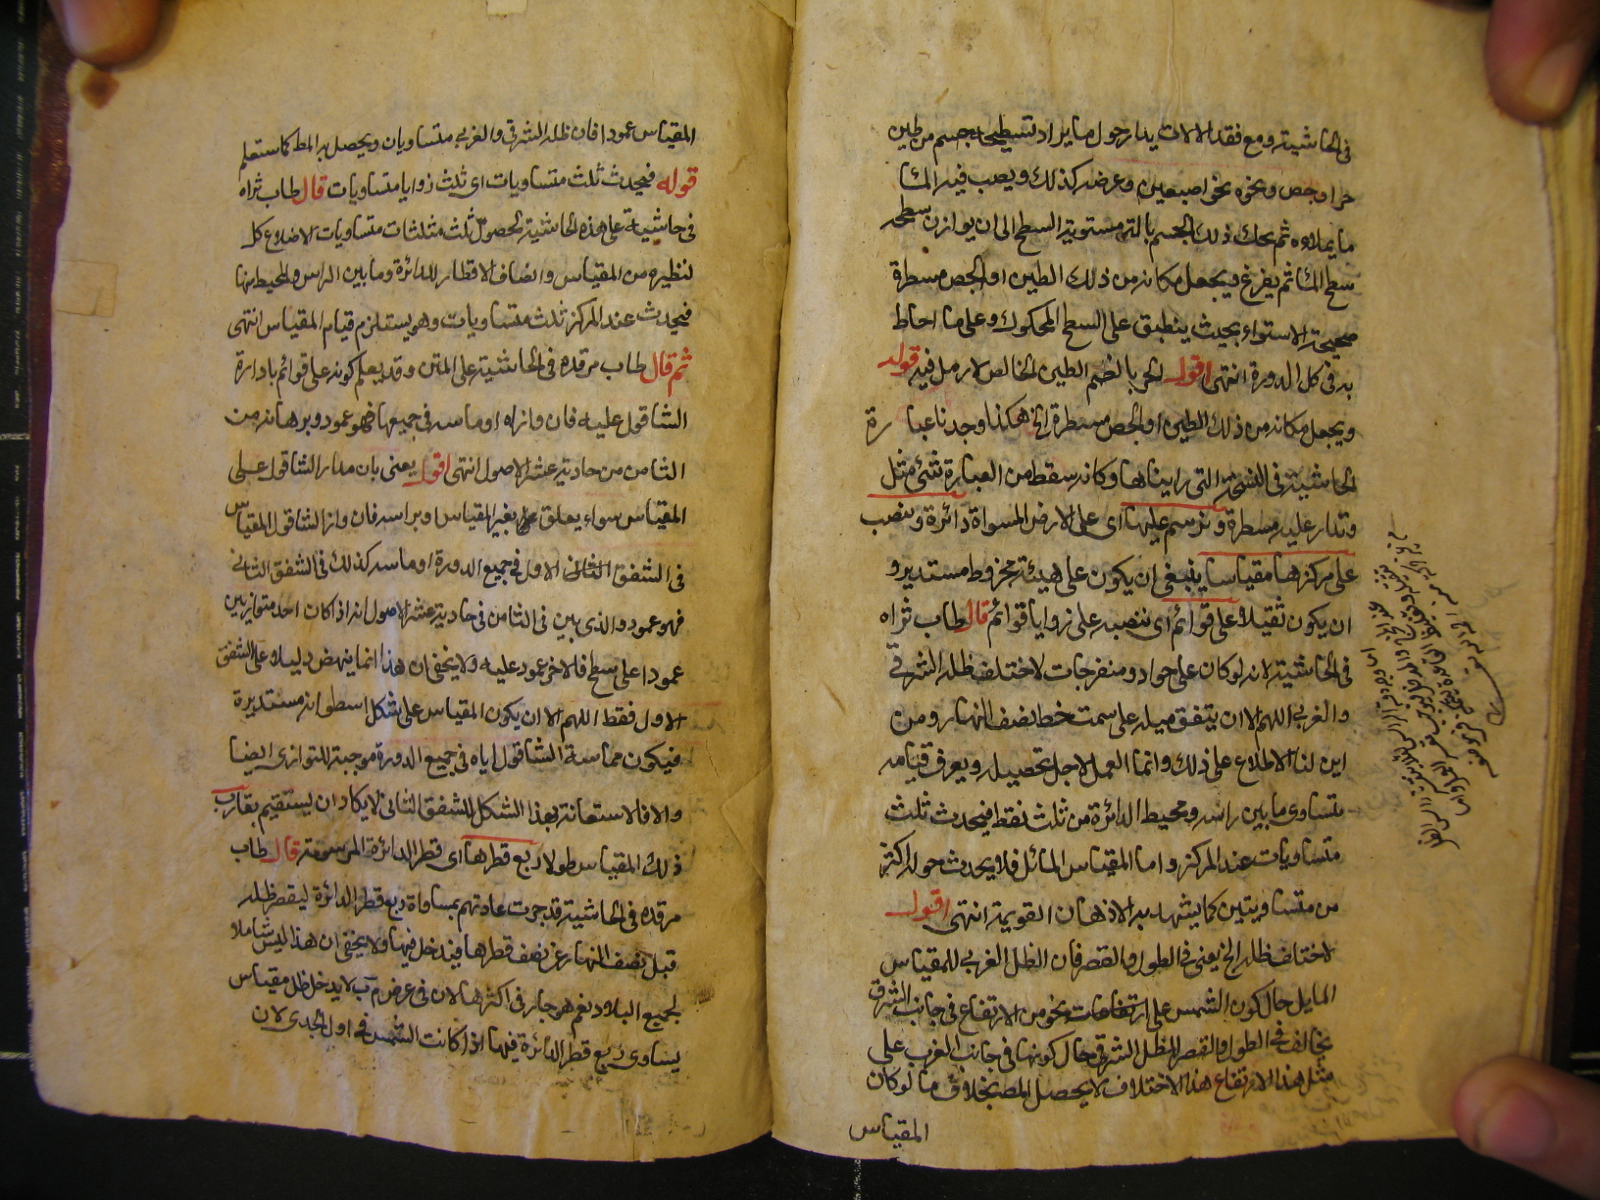 في الحاشية ومع فقد الالات يدار حول ما يراد تسطيحه جسم من طين
حر او جص ونحوه نحو اصبعين وعرضه كذلك ويصب فيه الماء
ما يملاوه ثم يحك ذلك الجسم بالة مستوية السطح الى ان يوازن سطحه
سطح الماء ثم يفرغ ويجعل مكانه من ذلك الطين او الجص مسطرة
صحيحة الاستواء بحيث ينطبق على السطح المحكوك وعلى ما احاط
به في كل الدورة انتهى اقول الحر بالضم الطين الخالص لا رمل فيه قوله
ويجعل مكانه من ذلك الطين او الجص مسطرة الخ هكذا وجدنا عبارة
الحاشية في النسخ التي رايناها وكانه سقط من العبارة شئ مثل
وتدار عليه مسطرة وترسم عليها اي على الارض المسواة دائرة وينصب
على مركزها مقياسا ينبغي ان يكون على هيئة مخروط مستدير و
ان يكون ثقيلا على قوائم اي ننصبه على زوايا قوائم قال طاب ثراه
في الحاشية لانه لو كان على حواد ومنفرجات لاختلف ظله الشرقي
والغربي اللهم الا ان يتفق ميله على سمت خط نصف النهار ومن
اين لنا الاطلاع على ذلك وانما العمل لاجل تحصيله ويعرف قيامه
بتساوي ما بين راسه ومحيط الدائرة من ثلث نقط فيحدث ثلث
متساويات عند المركز واما المقياس المائل فلا يحدث حول المركز
من متساويتين كما يشهد به الاذهان القويمة انتهى اقول
لاختلف ظله الخ يعنى في الطول والقصر فان الظل الغربي للمقياس
المايل حال كون الشمس على ارتفاعات نحو من الارتفاع في جانب الشرق
يخالف في الطول والقصر للظل الشرقي حال كونها في جانب الغرب على
مثل هذا الارتفاع هذا الاختلاف لا يحصل المط بخلاف ما لو كان
المقياس
المقياس عمودا فان ظله الشرقي والغربي متساويان ويحصل به المط كما ستعلم
قوله فيحدث ثلث متساويات اي ثلث زوايا متساويات قال طاب ثراه
في حاشية على هذه الحاشية لحصول ثلث مثلثات متساويات الاضلاع كل
لنظيره من المقياس وانصاف الاقطار للدائرة وما بين الراس والمحيط منها
فيحدث عند المركز ثلث متساويات وهو يستلزم قيام المقياس انتهى
ثم قال طاب مرقده في الحاشية على المتن وقد يعلم كونه على قوائم بادارة
الشاقول عليه فان وازاه او ماسه في جميعها فهو عمود وبرهانه من
الثامن من حادية عشر الاصول انتهى اقول يعنى بان مدار الشاقول على
المقياس سواء يعلق بغير المقياس او براسه فان وازا الشاقول المقياس
في الشقق الاول في جميع الدورة او ماسه كذلك في الشقق الثاني
فهو عمود والذي بين في الثامن في حادية عشر الاصول انه اذا كان احد متوازيين
عمودا على سطح فالاخر عمود عليه ولا يخفى ان هذا انما ينهض دليلا على الشقق
الاول فقط اللهم الا ان يكون المقياس على شكل اسطوانه مستديرة
فيكون مماسة الشاقول اياه في جميع الدورة موجبة للتوازي ايضا
والا فالاستعانة بهذا الشكل للشقق الثاني لا يكاد ان يستقيم يقارب
ذلك المقياس طولا ربع قطرها اي قطر الدائرة المرسومة قال طاب
مرقده في الحاشية قد جرت عادتهم بمساواة ربع قطر الدائرة ليقصر ظله
قبل نصف النهار عن نصف قطرها فيدخل فيها ولا يخفى ان هذا ليس شاملا
لجميع البلاد نعم هو جار في اكثرها لان في عرض م ب لا يدخل ظل مقياس
يساوي ربع قطر الدائرة فيها اذا كانت الشمس في اول الجدي لان